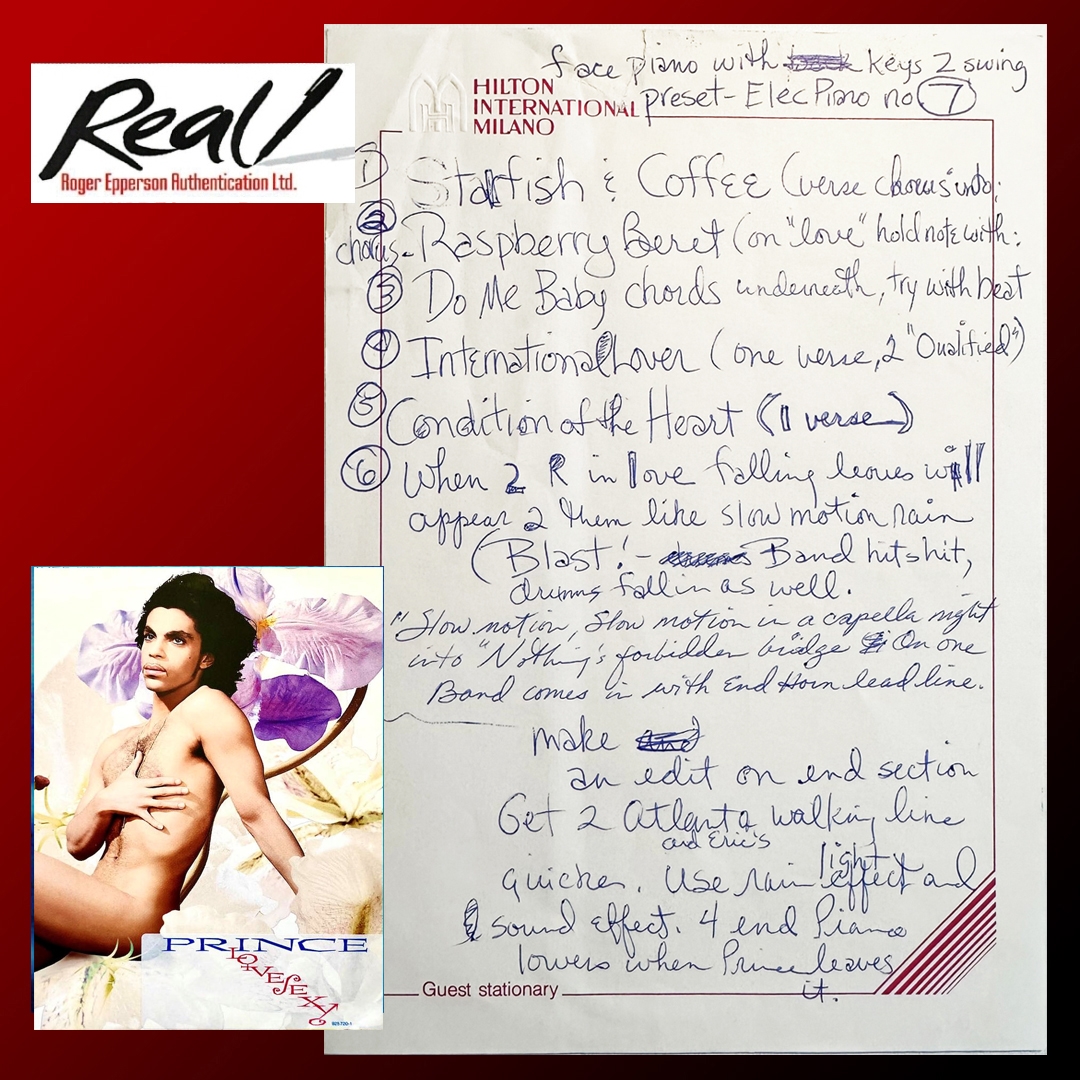 Real!
Roger Epperson Authentication Ltd.
face piano with keys 2 swing
preset - Elec Piano no 7
HILTON
INTERNATIONAL
MILANO
1) Starfish & Coffee (verse chorus into:
2 chorus - Raspberry Beret (on "love" hold note with:
3 Do Me Baby chords underneath, try with beat
4 International Lover (one verse, 2 "Qualified")
5 Condition of the Heart (1 verse)
6 When 2 R in love falling leaves will
appear 2 them like slow motion rain
(Blast! - Band hits hit,
drums fall in as well.
"Slow motion, Slow motion in a capella night
into "Nothing's forbidden bridge On one
Band comes in with End Horn lead line.
make
an edit on end section
Get 2 Atlanta walking line
and Eric's
quicker. Use rain light effect and
sound effect. 4 end Piano
lowers when Prince leaves
it.
Guest stationary
PRINCE
LOVESEXY
925 720-1